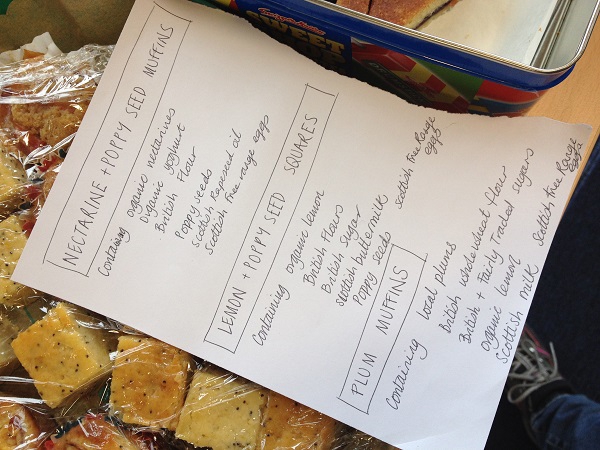 NECTARINE + POPPY SEED MUFFINS
Containing organic nectarines
Organic yoghurt
British Flour
Poppy seeds
Scottish Rapeseed oil
Scottish Free range eggs
LEMON + POPPY SEED SQUARES
Containing organic lemon
British Flours
British sugar
Scottish buttermilk
Poppy seeds
Scottish Free Range eggs
PLUM MUFFINS
Containing local plums
British wholewheat flour
British + Fairly Traded sugars
organic lemon
Scottish milk
Scottish Free Range eggs
SWEET